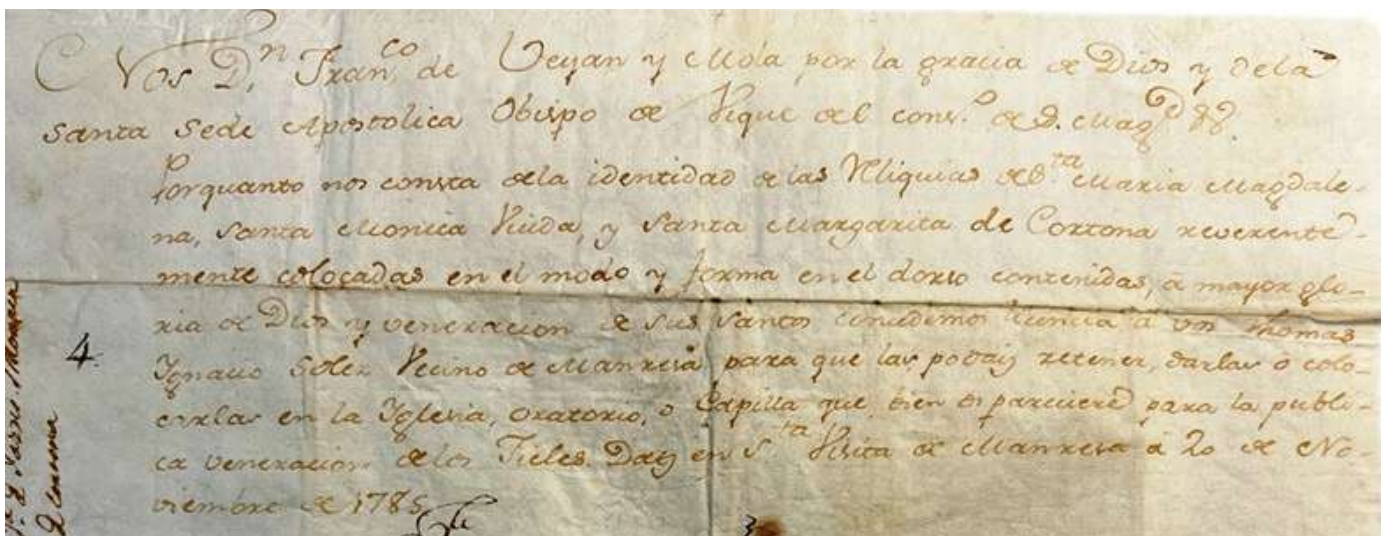 Nos Dn. Franco. de Veyan y Mola por la gracia de Dios y dela
Santa Sede Apostolica Obispo de Vique del cons.o de S. Magd. &&.
Porquanto nos consta dela identidad de las Rliquias de Sta Maria Magdale-
na, Santa Monica Viuda, y Santa Margarita de Cortona reverente-
mente colocadas en el modo y forma en el dorso contenidas, à mayor glo-
ria de Dios y veneracion de sus Santos concedimos licencia à vos Thomas
Ignacio Soler Vecino de Manresa para que las podais retener, darlas o colo-
carlas en la Iglesia, oratorio, o Capilla que bien os pareciere para la publi-
ca veneracion delos Fieles. Dat en Sta Visita de Manresa à 20 de No-
viembre de 1785
4.